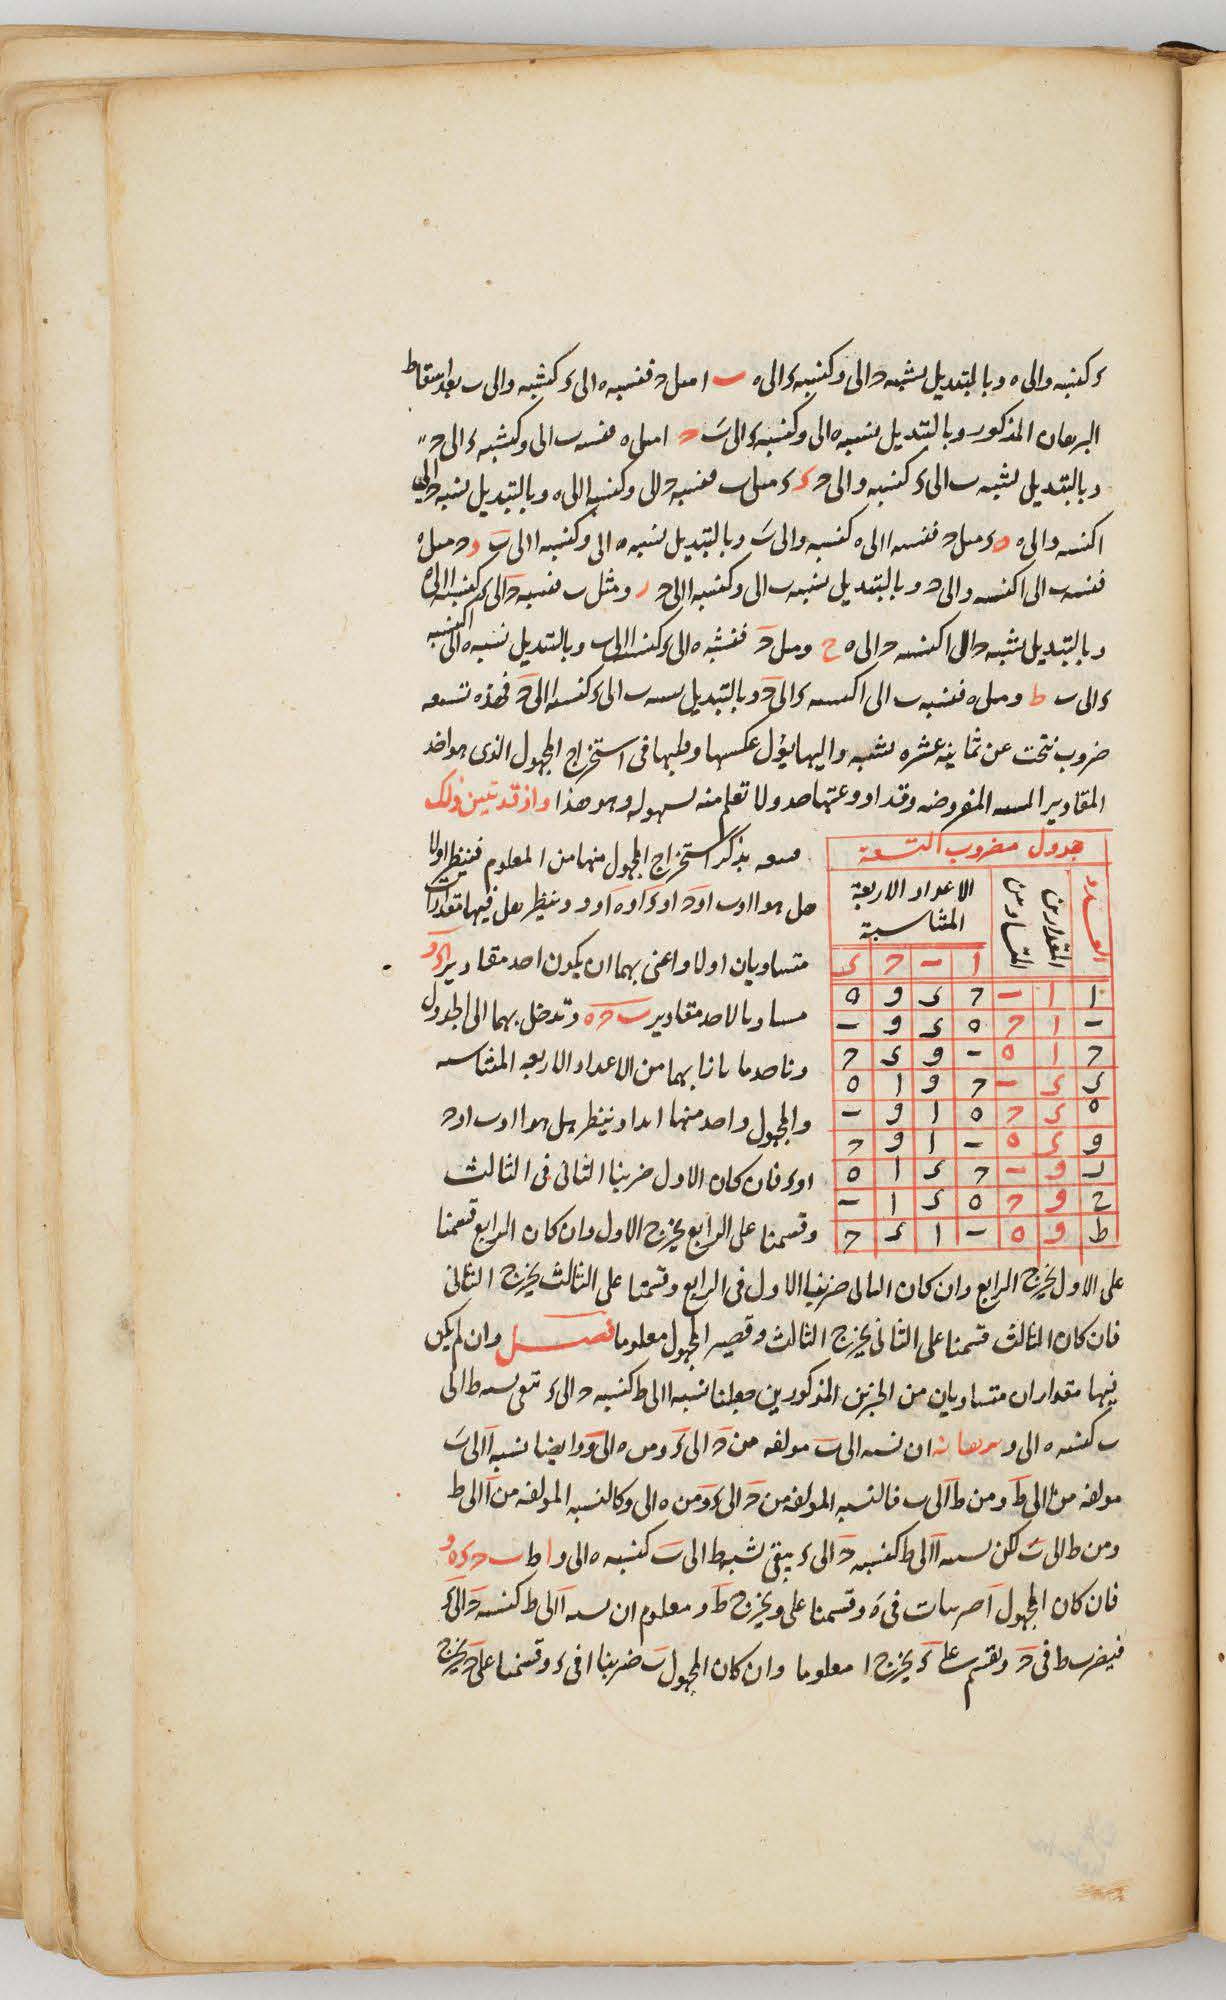 ء كنسبه و الى ه و بالتبديل نسبه ح الى و كنسبه ء الى ه ب ا مىل ح فنسبه ه الى ء كنسبه و الى ب بعد اسقاط
البرهان المذكور و بالتبديل نسبه ه الى و كنسبه ء الى ب ح ا مىل ه فنسبه ب الى و كنسبه ء الى ح
و بالتبديل نسبه ب الى ء كنسبه و الى ح ء ء مىل ب فنسبه ح الى و كنسبه ا الى ه و بالتبديل نسبه ح الى
ا كنسبه و الى ه ه ء مىل ح فنسبه ا الى ه كنسبه و الى ب و بالتبديل نسبه ه الى و كنسبه ا الى ب و ء مىل ه
فنسبه ب الى ا كنسبه و الى ح و بالتبديل نسبه ب الى و كنسبه ا الى ح ر و مثل ب فنسبه ح الى ء كنسبه ا الى ه
و بالتبديل نسبه ح الى ا كنسبه ء الى ه ح و مىل ح فنسبه ه الى ء كنسبه ا الى ب و بالتبديل نسبه ه الى ا كنسبه
ء الى ب ط و مىل ه فنسبه ب الى ا كنسبه ء الى ح و بالتبديل نسبه ب الى ء كنسبه ا الى ح فهذه تسعه
ضروب نتجت عن ثمانيه عشره نسبه و اليها يؤل عكسها و طيها فى استخراج المجهول الذى هو احد
المقادير السته المفروضه و قد اودعتها جدولا تعلم منه بسهوله و هو هذا و اذ قد تبين ذلك
جدول مضروب التسعة
العدد
المقدارين
المتساويين
الاعداد الاربعة
المتناسبة
ا ب ح ء
ا ا ب ح ء و ه
ب ا ح ه ء و ب
ح ا ه ب و ء ح
ء ء ب ح و ا ه
ه ء ح ه ا و ب
و ء ه ب ا و ح
ر و ب ح ء ا ه
ح و ح ه ء ا ب
ط و ه ب ا ء ح
بذكر استخراج المجهول منها من المعلوم فننظر اولا
هل هو ا او ب او ح او ء او ه او و و ننظر هل فيها مقداران
متساويان اولا و اعنى بهما ان يكون احد مقادير ا ء و
مساويا لاحد مقادير ب ح ه و ندخل بهما الى الجدول
و ناخذ ما بازائهما من الاعداد الاربعه المتناسبه
و المجهول واحد منها ابدا و ننظر هل هو ا او ب او ح
او ء فان كان الاول ضربنا الثانى فى الثالث
و قسمنا على الرابع يخرج الاول و ان كان الرابع قسمنا
على الاول يخرج الرابع و ان كان الثانى ضربنا الاول فى الرابع و قسمنا على الثالث يخرج الثانى
فان كان الثالث قسمنا على الثانى يخرج الثالث و تصير المجهول معلوما فصل و ان لم يكن
فيها مقداران متساويان من الحيزين المذكورين جعلنا نسبه ا الى ط كنسبه ح الى ء تبقى نسبه ط الى
ب كنسبه ه الى و برهانه ان نسبه ا الى ب مولفه من ح الى ء و من ه الى و و ايضا نسبه ا الى ب
مولفه من ا الى ط و من ط الى ب فالنسبه المولفه من ح الى ء و من ه الى و كالنسبه المولفه من ا الى ط
و من ط الى ب لكن نسبه ا الى ط كنسبه ح الى ء يبقى نسبه ط الى ب كنسبه ه الى و ا ط ب ح ء ه و
فان كان المجهول ا ضربنا ب فى ه و قسمنا على و يخرج ط و معلوم ان نسبه ا الى ط كنسبه ح الى ء
فيضرب ط فى ح و نقسم على ء يخرج ا معلوما و ان كان المجهول ب ضربنا ا فى ء و قسمنا على ح يخرج